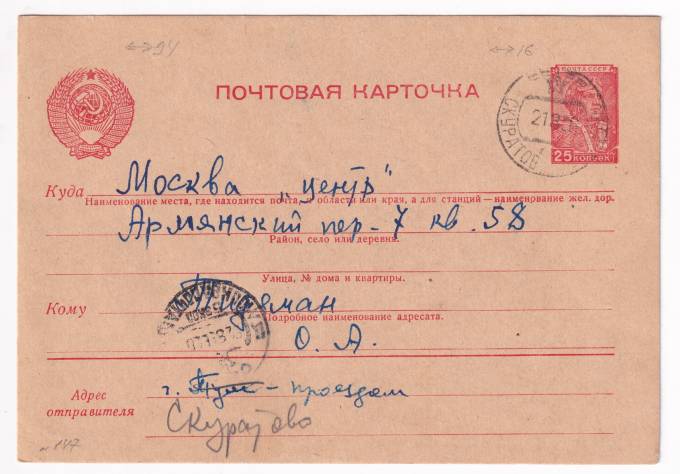 94
16
ПОЧТОВАЯ КАРТОЧКА
ПОЧТА СССР
СКУРАТОВ
25 КОПЕЕК
Куда Москва „центр"
Наименование места, где находится почта, и области или края, а для станций — наименование жел. дор.
Армянский пер-7 кв. 58
Район, село или деревня.
Улица, № дома и квартиры.
Кому
Подробное наименование адресата.
О. А.
Адрес отправителя
г. Тула - проездом
Скуратово
147